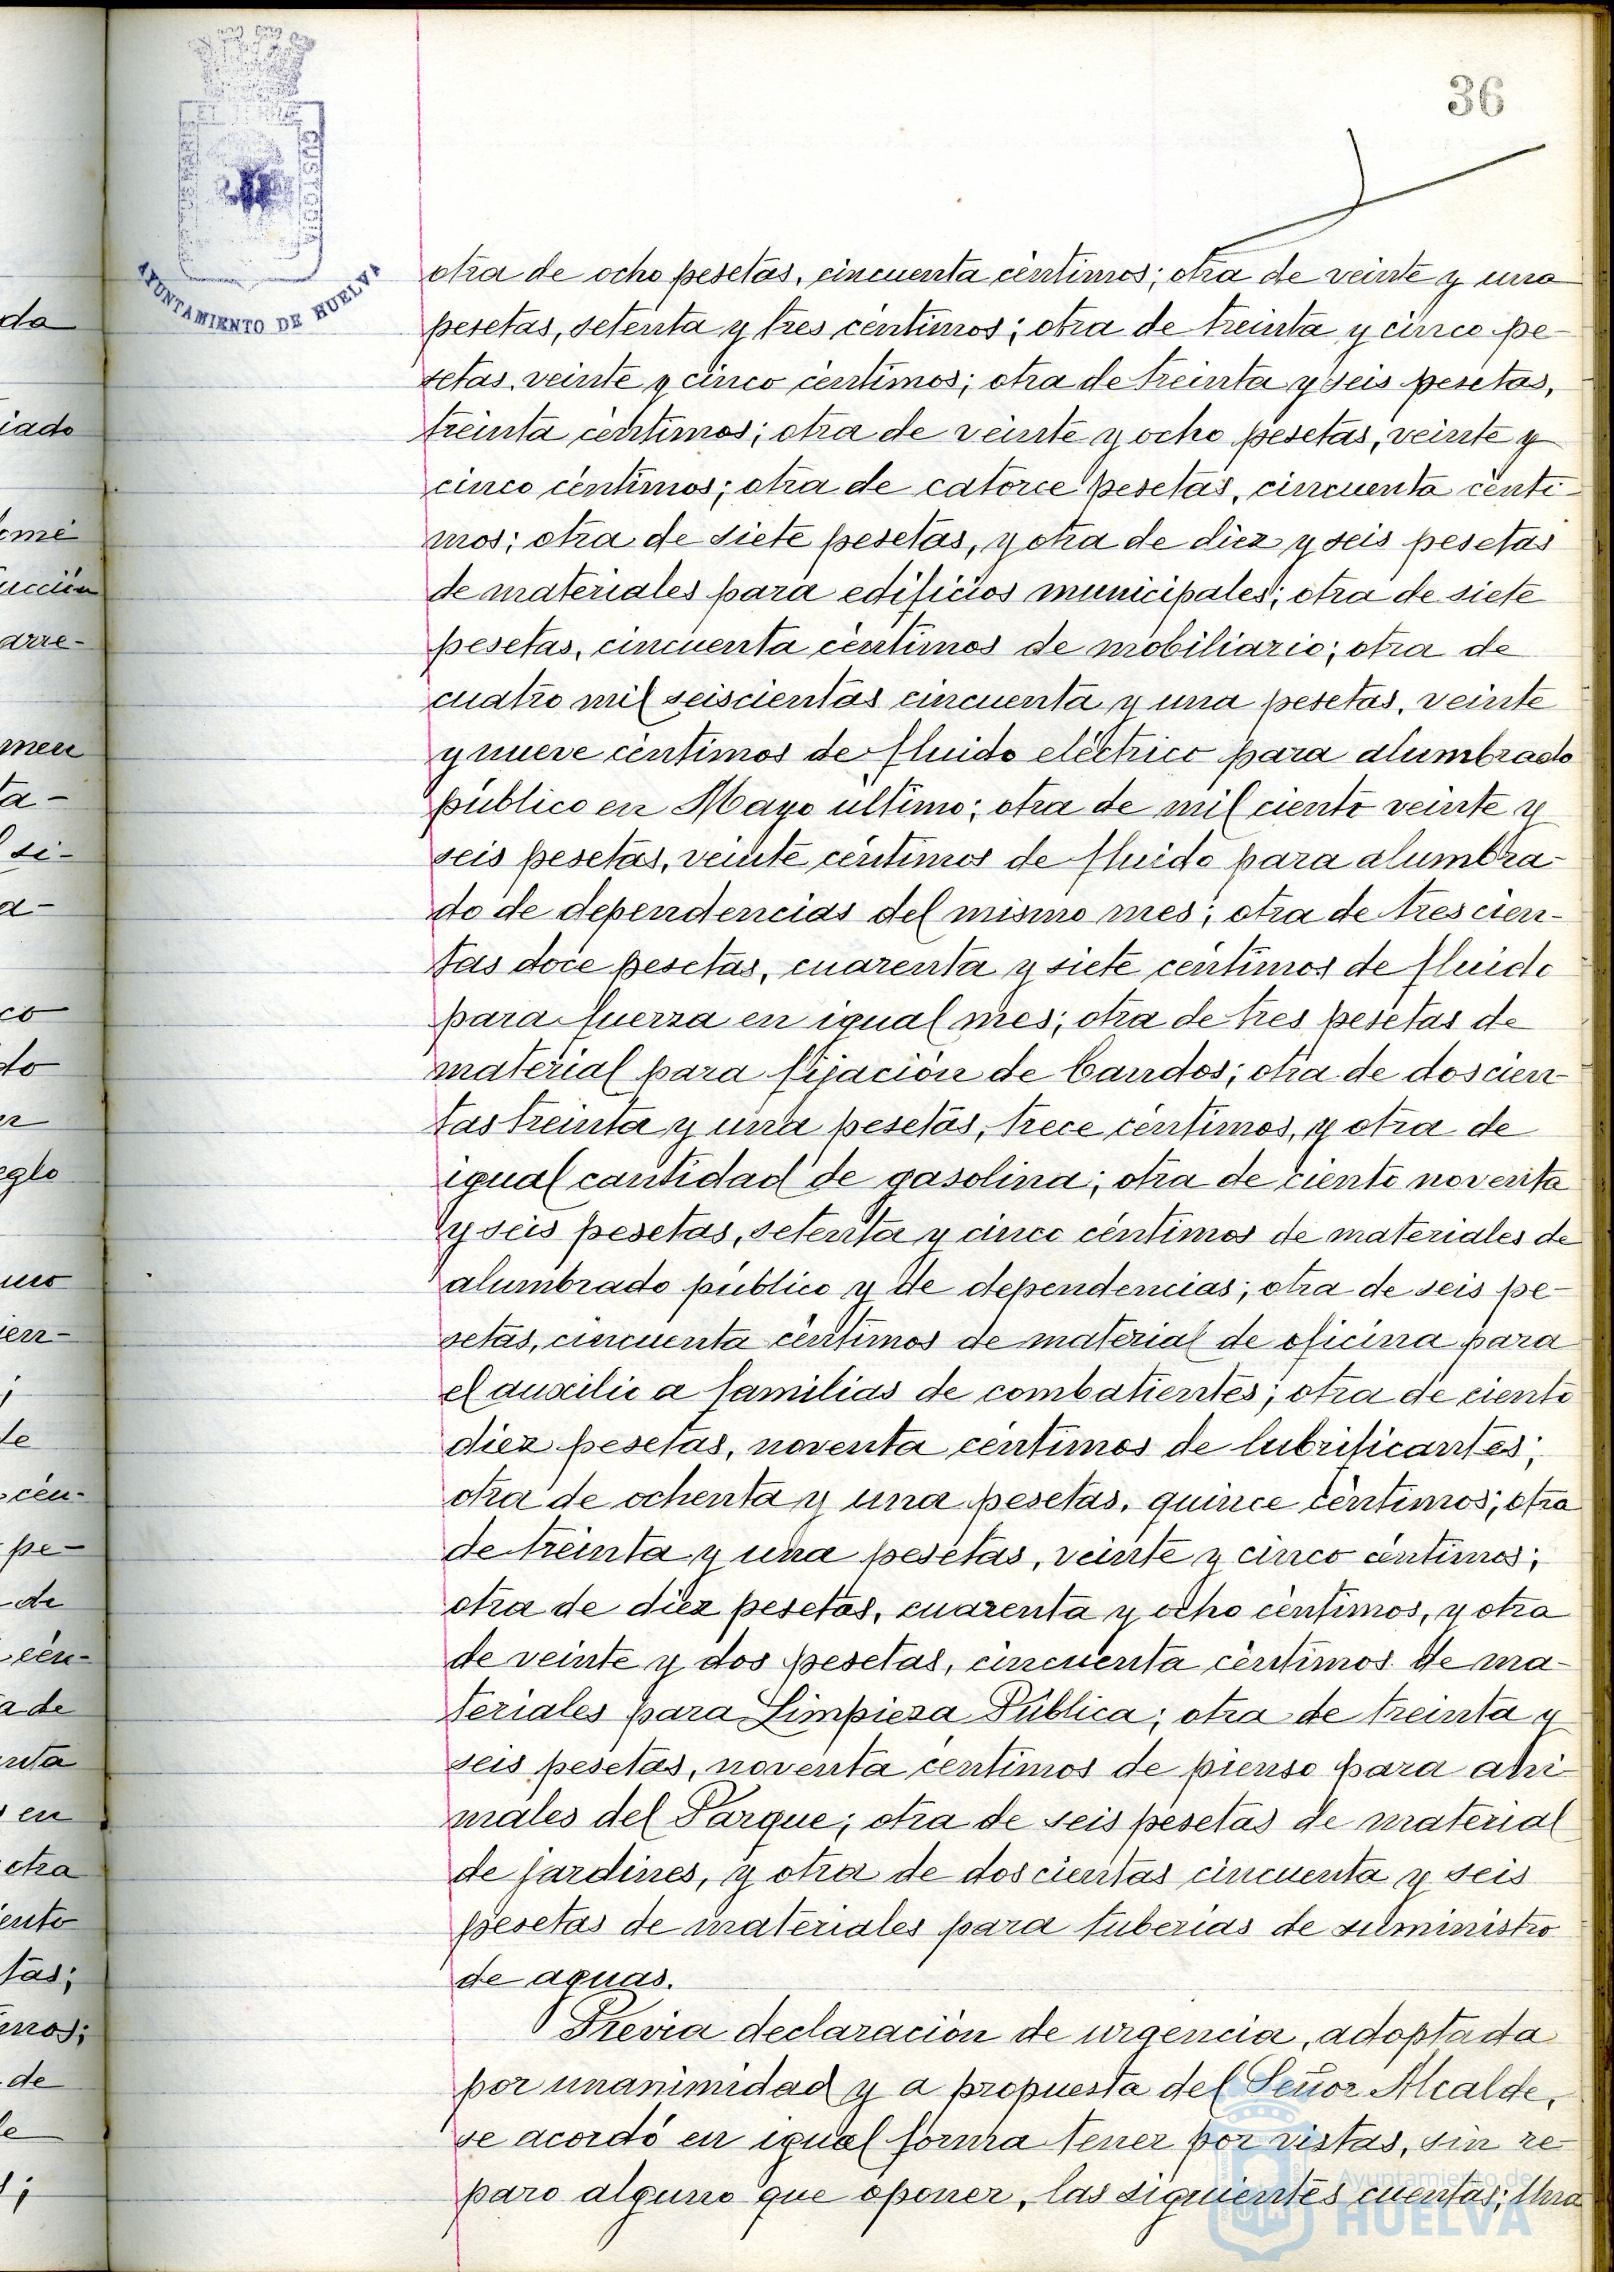 36
AYUNTAMIENTO DE HUELVA
otra de ocho pesetas, cincuenta céntimos; otra de veinte y una
pesetas, setenta y tres céntimos; otra de treinta y cinco pe-
setas, veinte y cinco céntimos; otra de treinta y seis pesetas,
treinta céntimos; otra de veinte y ocho pesetas, veinte y
cinco céntimos; otra de catorce pesetas, cincuenta cénti-
mos; otra de siete pesetas, y otra de diez y seis pesetas
de materiales para edificios municipales; otra de siete
pesetas, cincuenta céntimos de mobiliario; otra de
cuatro mil seiscientas cincuenta y una pesetas, veinte
y nueve céntimos de fluido eléctrico para alumbrado
público en Mayo último; otra de mil ciento veinte y
seis pesetas, veinte céntimos de fluido para alumbra-
do de dependencias del mismo mes; otra de trescien-
tas doce pesetas, cuarenta y siete céntimos de fluido
para fuerza en igual mes; otra de tres pesetas de
material para fijación de bandos; otra de doscien-
tas treinta y una pesetas, trece céntimos, y otra de
igual cantidad de gasolina; otra de ciento noventa
y seis pesetas, setenta y cinco céntimos de materiales de
alumbrado público y de dependencias; otra de seis pe-
setas, cincuenta céntimos de material de oficina para
el auxilio a familias de combatientes; otra de ciento
diez pesetas, noventa céntimos de lubrificantes;
otra de ochenta y una pesetas, quince céntimos; otra
de treinta y una pesetas, veinte y cinco céntimos;
otra de diez pesetas, cuarenta y ocho céntimos, y otra
de veinte y dos pesetas, cincuenta céntimos de ma-
teriales para Limpieza Pública; otra de treinta y
seis pesetas, noventa céntimos de pienso para ani-
males del Parque; otra de seis pesetas de material
de jardines, y otra de doscientas cincuenta y seis
pesetas de materiales para tuberías de suministro
de aguas.
Previa declaración de urgencia, adoptada
por unanimidad y a propuesta del Señor Alcalde,
se acordó en igual forma tener por vistas, sin re-
paro alguno que oponer, las siguientes cuentas: Una
Ayuntamiento de
HUELVA